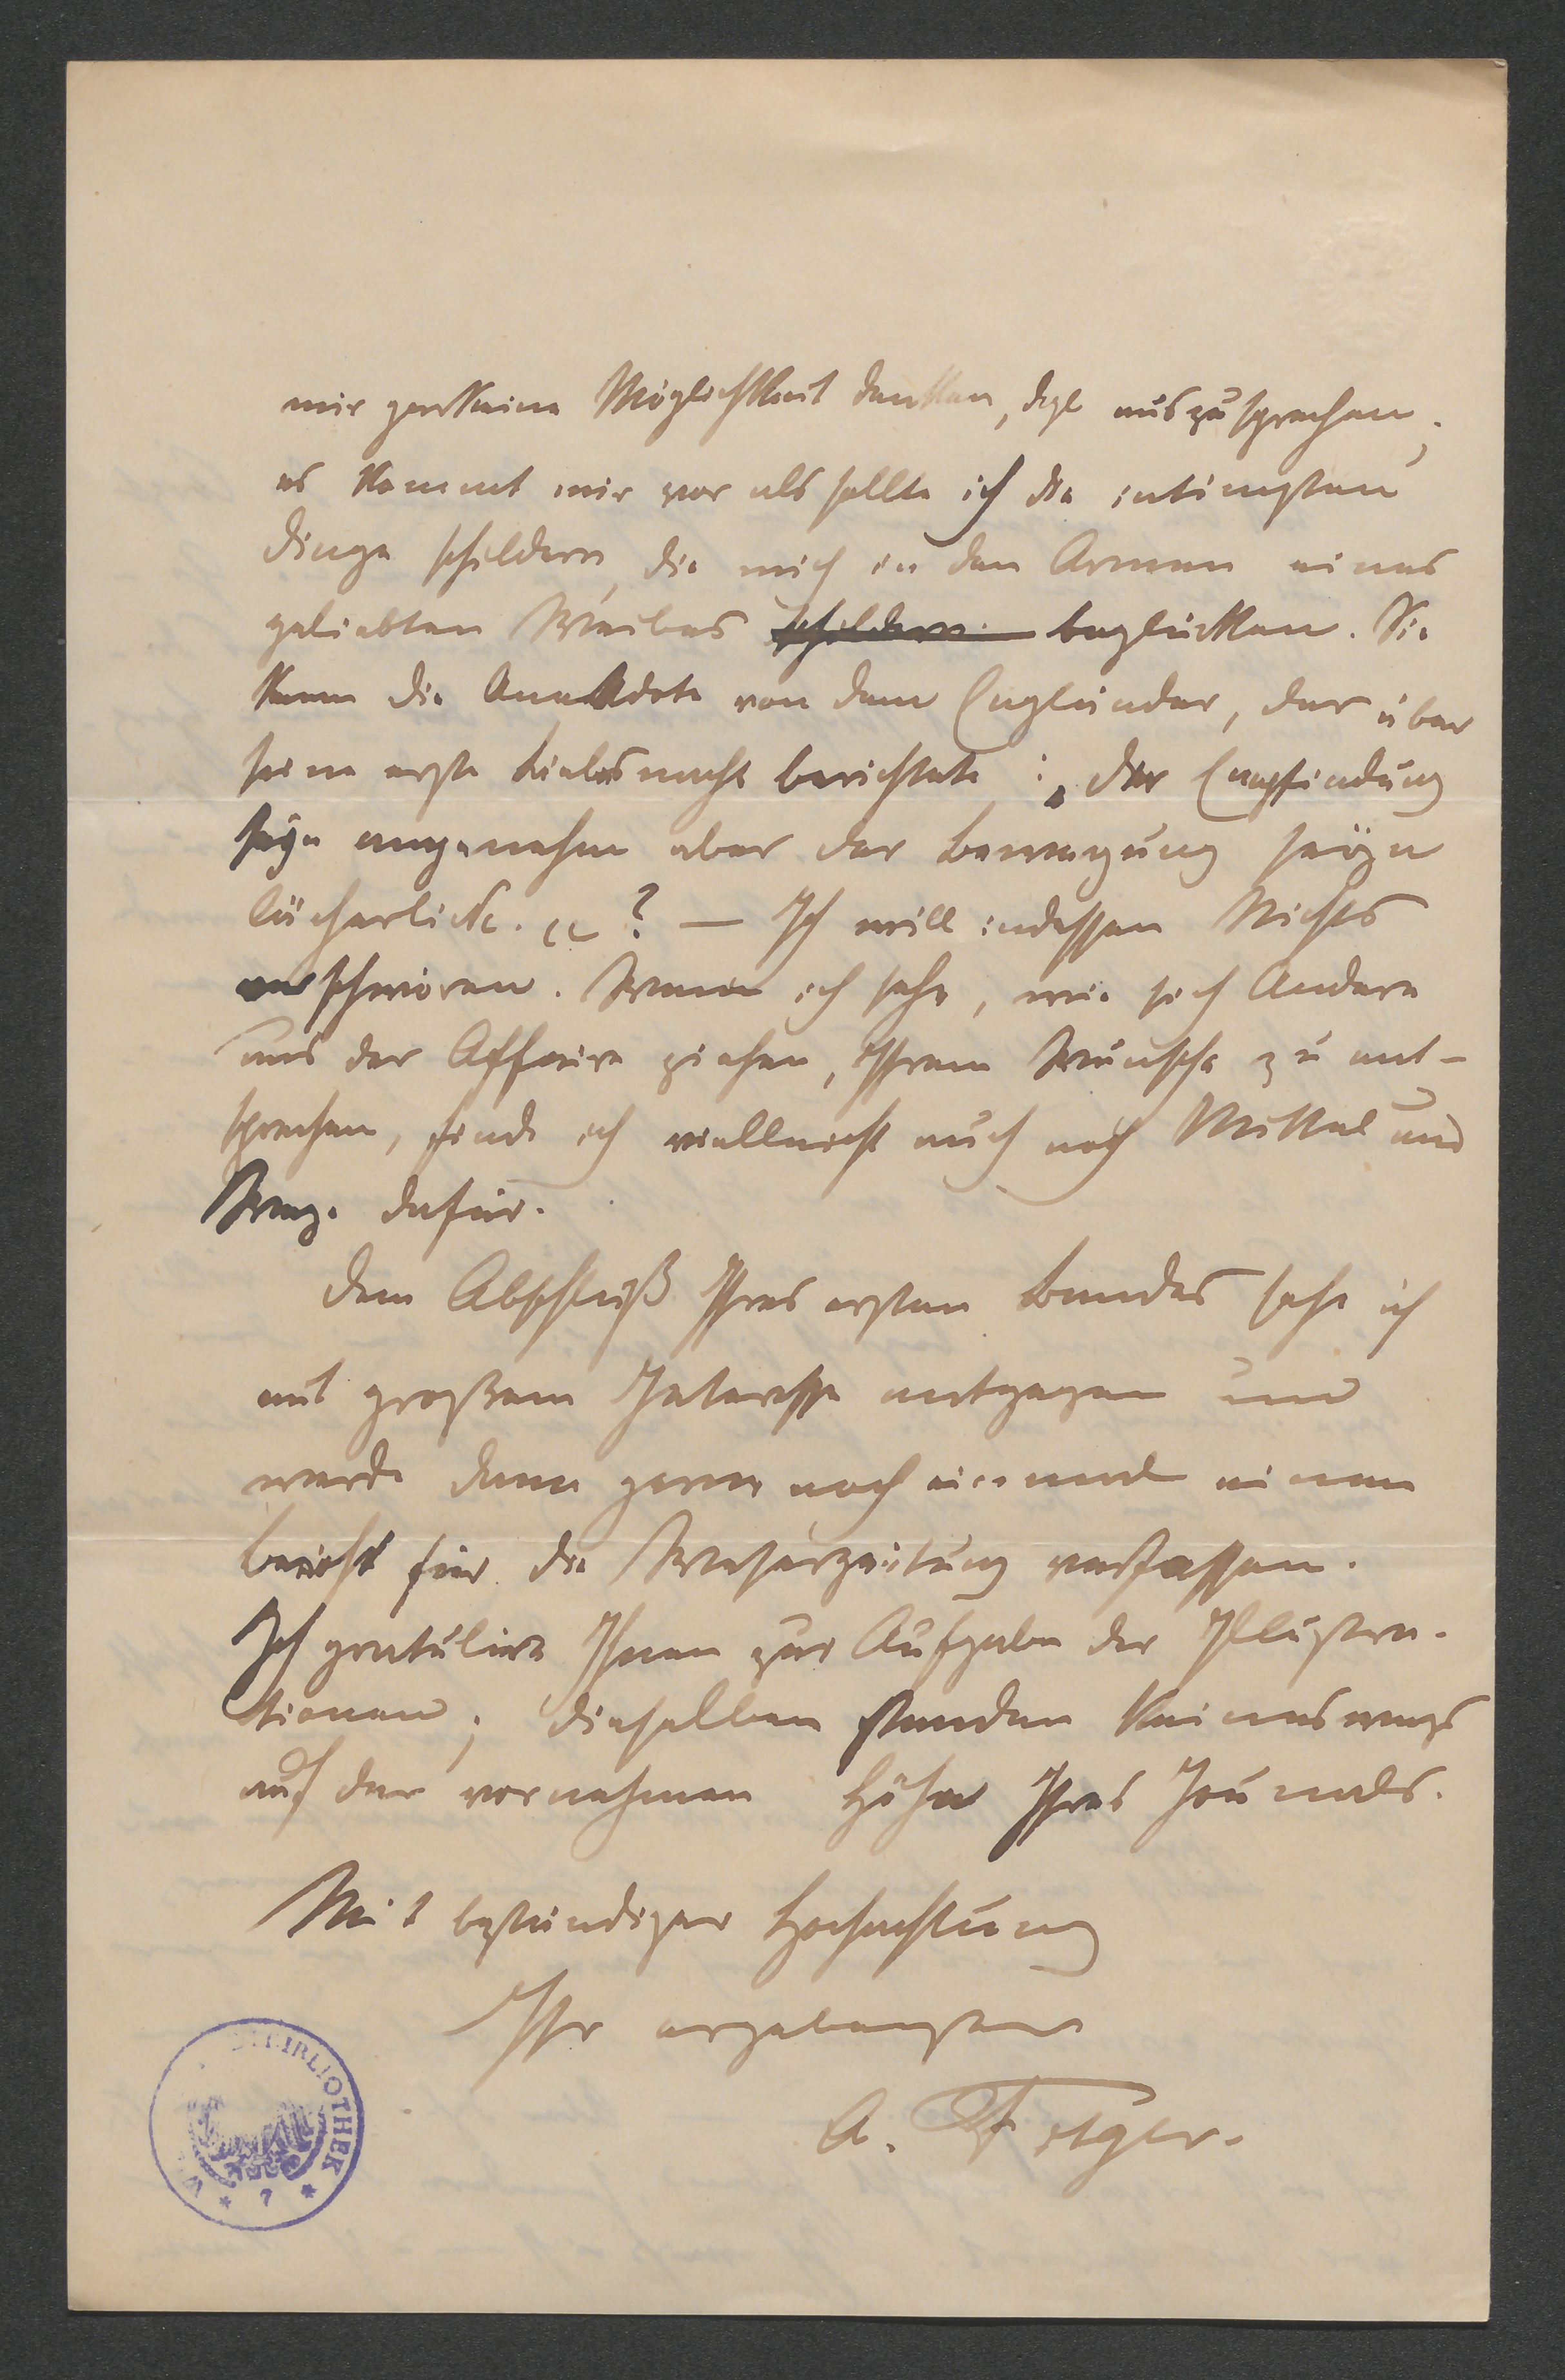 mir garkeine Möglichkeit denken, dgl auszusprechen;
es kommt mir vor als sollte ich die intimsten
Dinge schildern, die mich in den Armen eines
geliebten Weibes schildern beglücken. Sie
kenn die Anekdote von dem Engländer, der über
seine erste Liebesnacht berichtete: „der Empfindung
seyn angenehm aber der Bewegung seyn
lächerlick." ? — Ich will indessen Nichts
verschwören. Wenn ich sehe, wie sich Andere
aus der Affaire ziehen, Ihrem Wunsche zu ent-
sprechen, finde ich vielleicht auch noch Mittel und
Wege dafür.
Dem Abschluß Ihres ersten Bandes sehe ich
mit großem Interesse entgegen und
werde dann gerne noch einmal einen
Bericht für die Weserzeitung verfassen.
Ich gratulire Ihnen zur Aufgabe der Illustra-
tionen; dieselben standen keineswegs
auf der vornehmen Höhe Ihres Journals.
Mit beständiger Hochachtung
Ihr ergebenster
A. Fitger.
BIBLIOTHEK